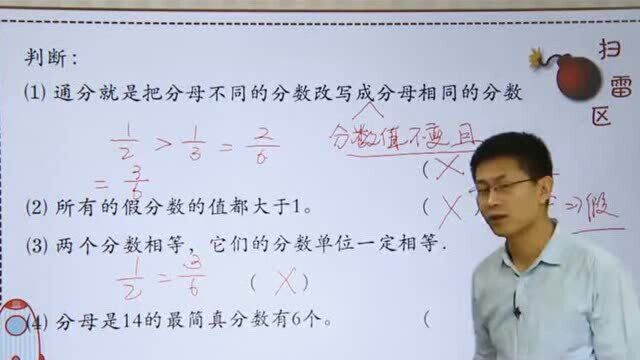 判断：
扫雷区
(1) 通分就是把分母不同的分数改写成分母相同的分数
1/2 > 1/3 = 2/6
分数值不变且
= 3/6
( ×
(2) 所有的假分数的值都大于1。 ( × ⇒假
(3) 两个分数相等，它们的分数单位一定相等．
1/2 = 3/6 ( × )
(4) 分母是14的最简真分数有6个。 (